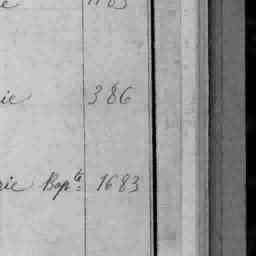 ie 1163
ie 386
rie Bapte 1683